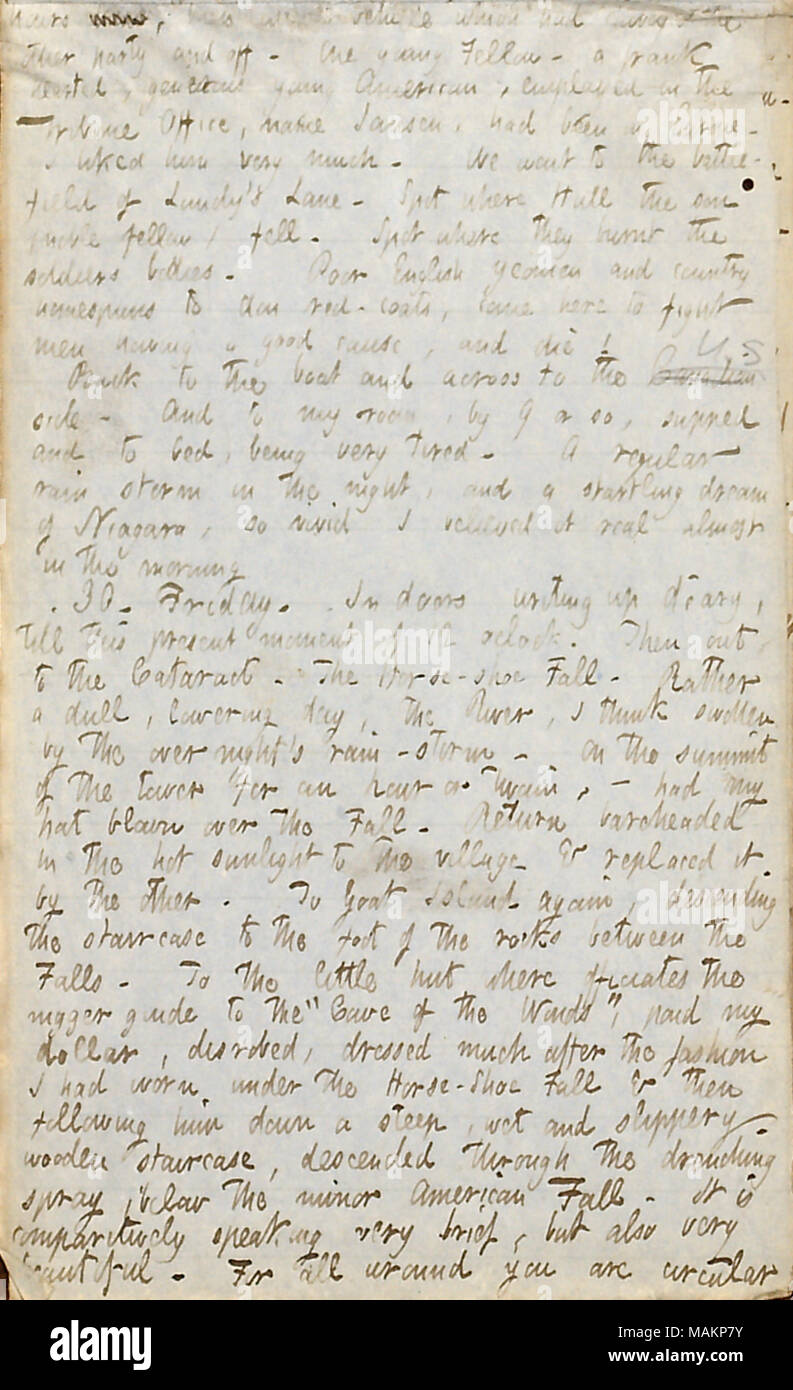 hours now, vehicle which had
other party and off - One young Fellow - a frank
hearted, generous young American, employed in the
Tribune Office, name Jansen, had been in
I liked him very much - We went to the battle-
field of Lundy's Lane - Spot where Hull the son
(noble fellow) fell - Spot where they burnt the
soldiers bodies - Poor English yeomen and country
homespuns to don red-coats, come here to fight
men having a good cause, and die! U.S
Back to the boat and across to the Canadian
side - And to my room, by 9 or so, supped
and to bed, being very tired - A regular
rain storm in the night, and a startling dream
of Niagara, so vivid I believed it real almost
in the morning
. 30 - Friday - . In doors writing up diary,
till this present moment of 12 oclock. Then out,
to the Cataract - The Horse-shoe Fall - Rather
a dull, lowering day, the River, I think swollen
by the over night's rain-storm - On the summit
of the tower for an hour or twain, - had my
hat blown over the Fall - Return bareheaded
in the hot sunlight to the village & replaced it
by the other. To Goat Island again, descending
the staircase to the foot of the rocks between the
Falls - To the little hut where officiates the
nigger guide to the "Cave of the Winds", paid my
dollar, disrobed, dressed much after the fashion
I had worn under the Horse-Shoe Fall & then
following him down a steep, wet and slippery
wooden staircase, descended through the drenching
spray, below the minor American Fall - It is
comparitively speaking very brief, but also very
beautiful - For all around you are circular
alamy
Image ID: MAKP7Y
www.alamy.com